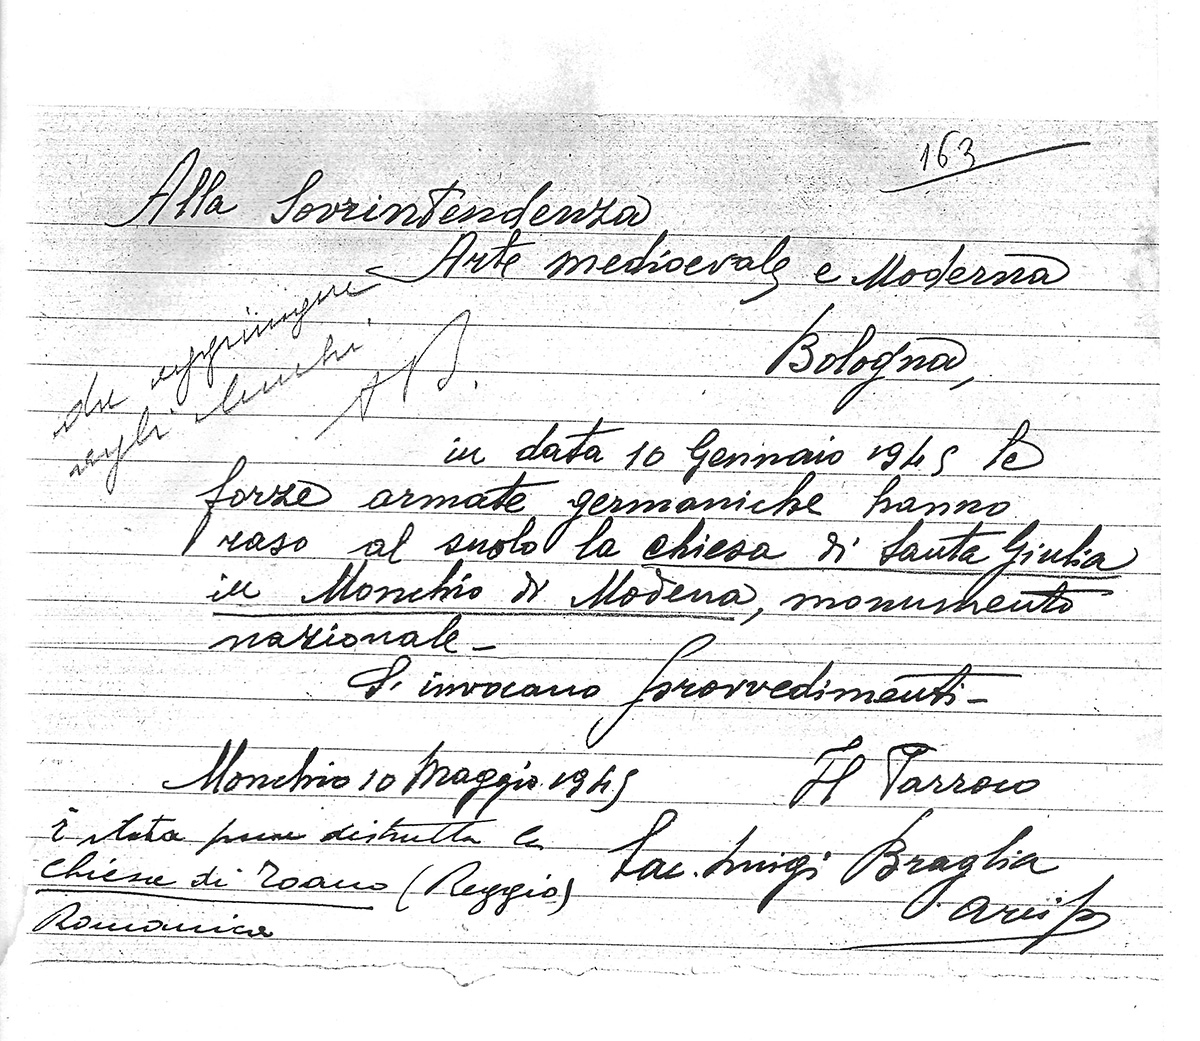 163
Alla Sovrintendenza
Arte medioevale e Moderna
da aggiungere
agli elenchi
AB.
Bologna,
in data 10 Gennaio 1945 le
forze armate germaniche hanno
raso al suolo la chiesa di Santa Giulia
in Monchio di Modena, monumento
nazionale_
Si invocano provvedimenti_
Monchio 10 Maggio 1945
Il Parroco
Sac. Luigi Braglia
Arcip
È stata pure distrutta la
Chiesa di Toano (Reggio)
Romanica